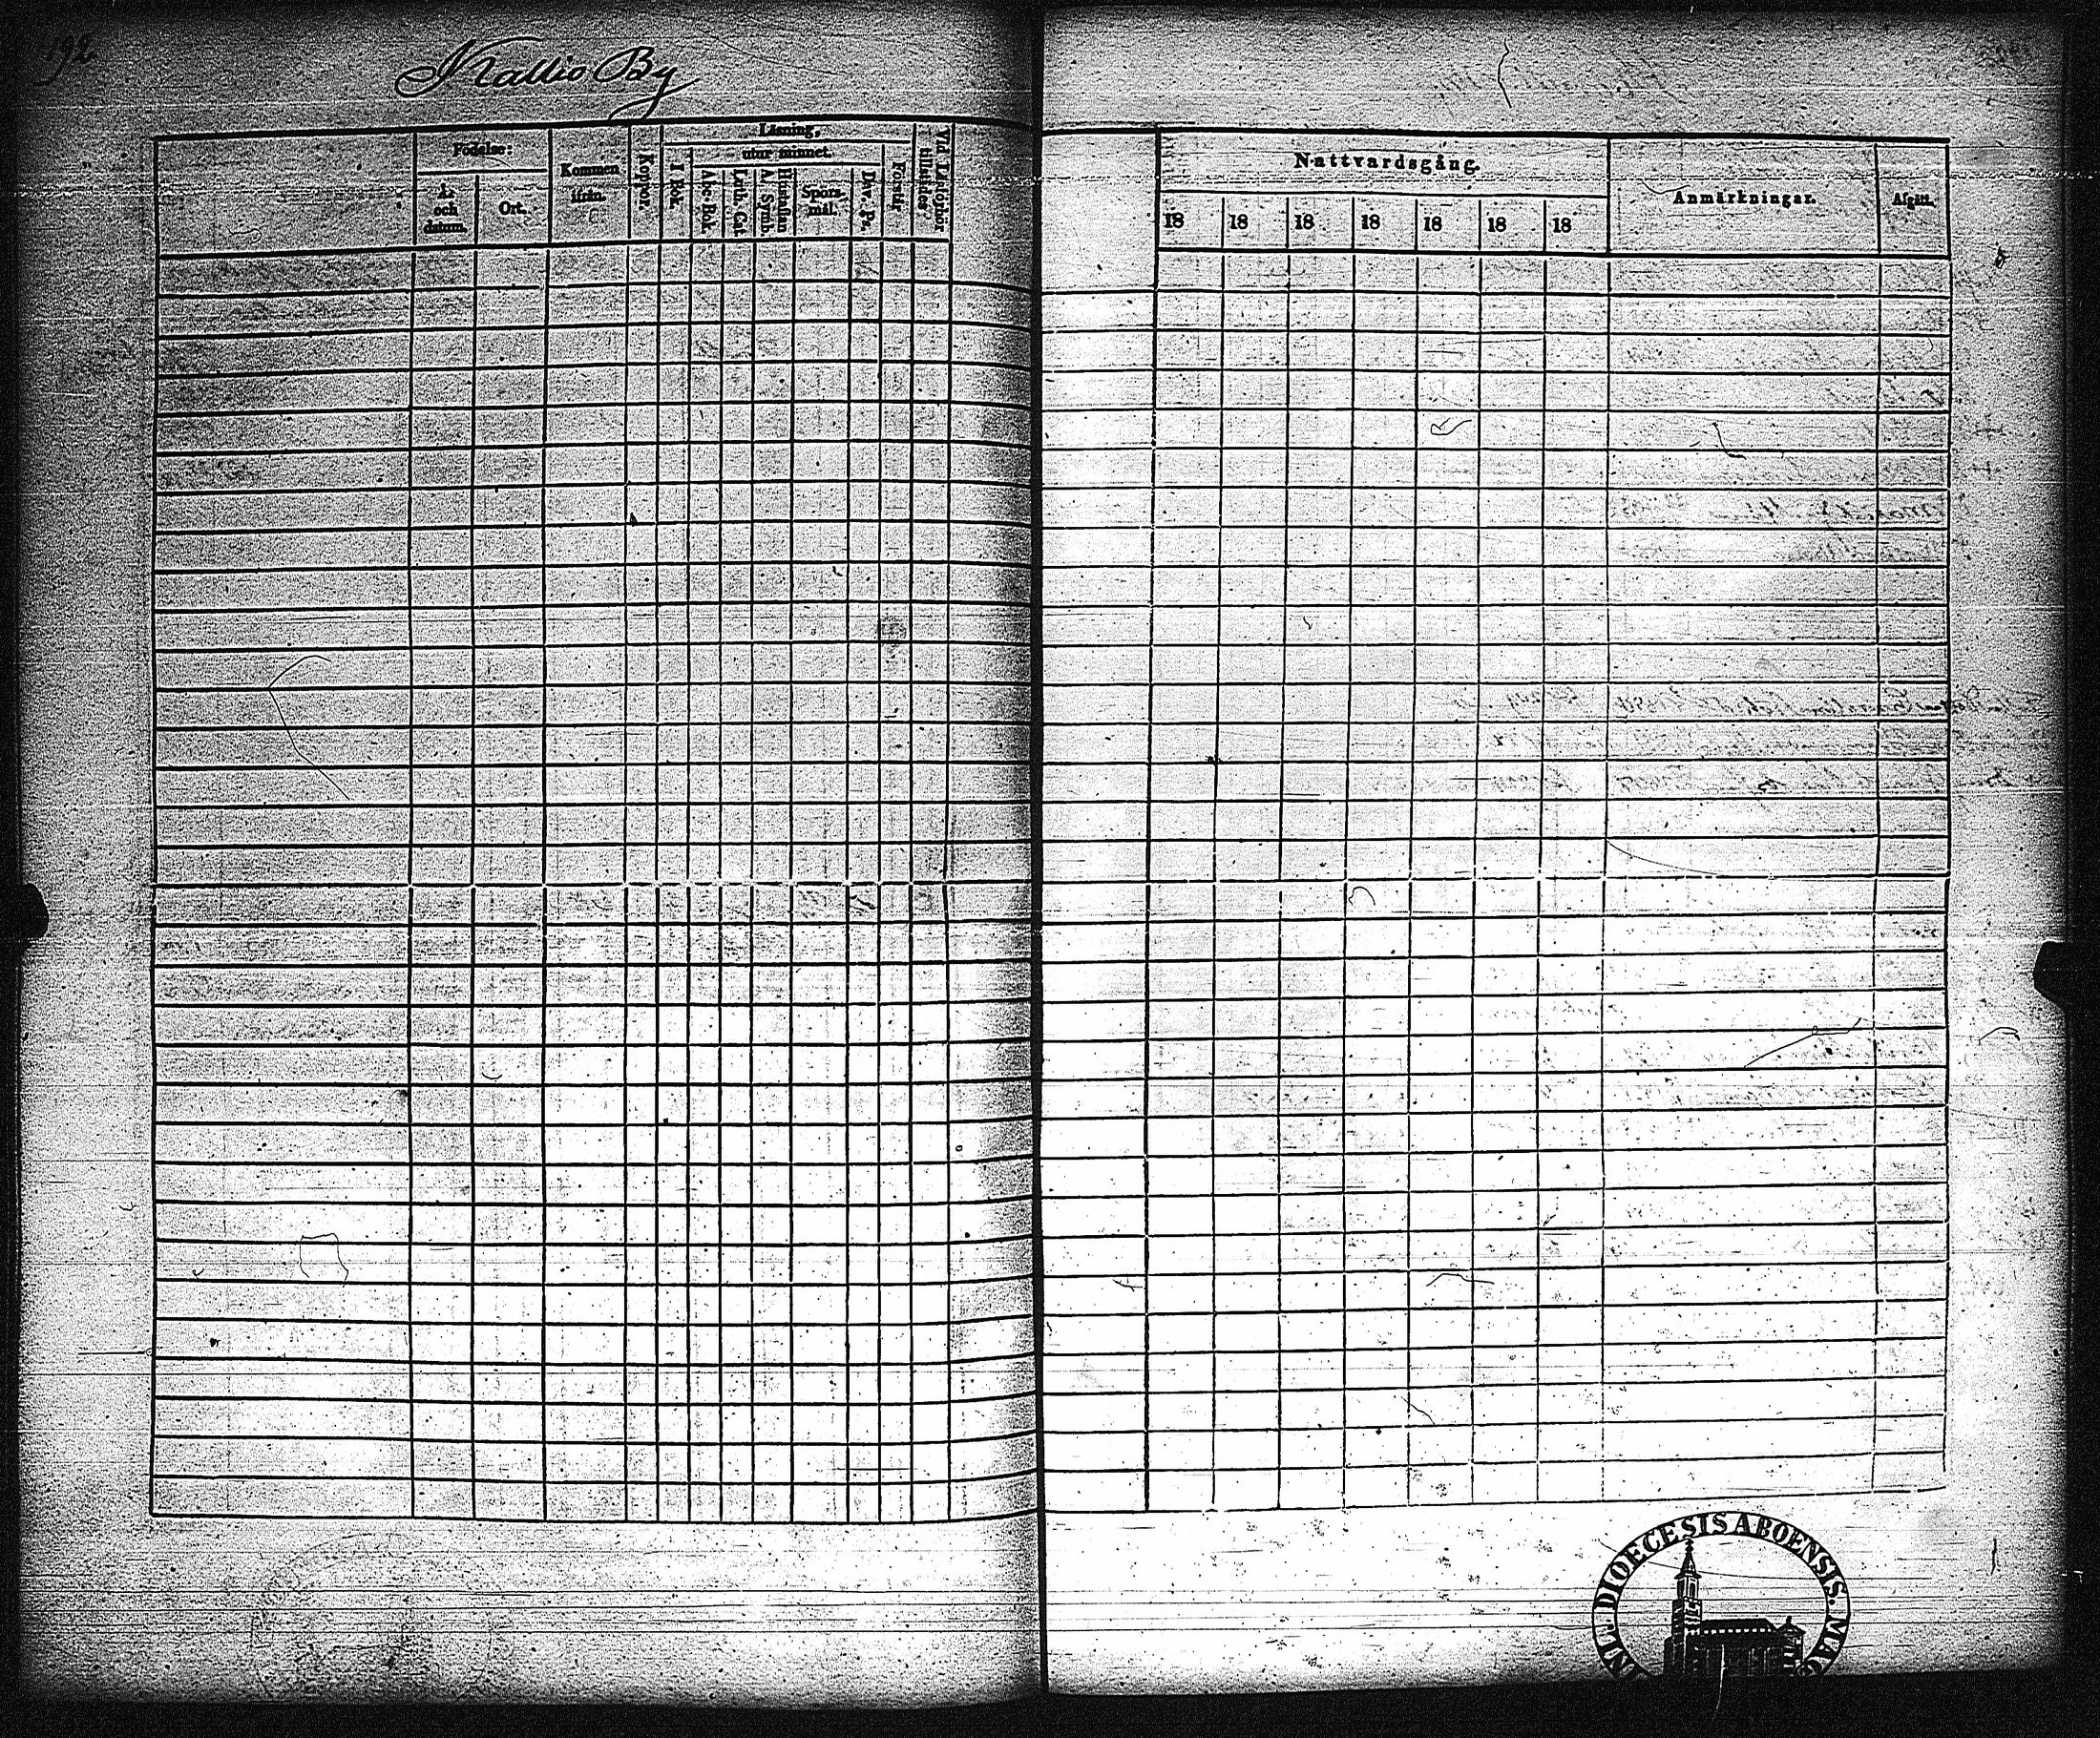 192
Kallio By
Födelse:
År och datum.
Ort.
Kommen ifrån.
Koppor.
Läsning,
utur minnet.
I Bok.
Abc Bok.
Luth. Cat.
Hustaflan A. Symb.
Spörsmål.
Dav. Ps.
Förstår
Vid Läsförhör tillstädes.
Nattvardsgång.
18 18 18 18 18 18 18
Anmärkningar.
Afgått.
DIOECESIS ABOENSIS.